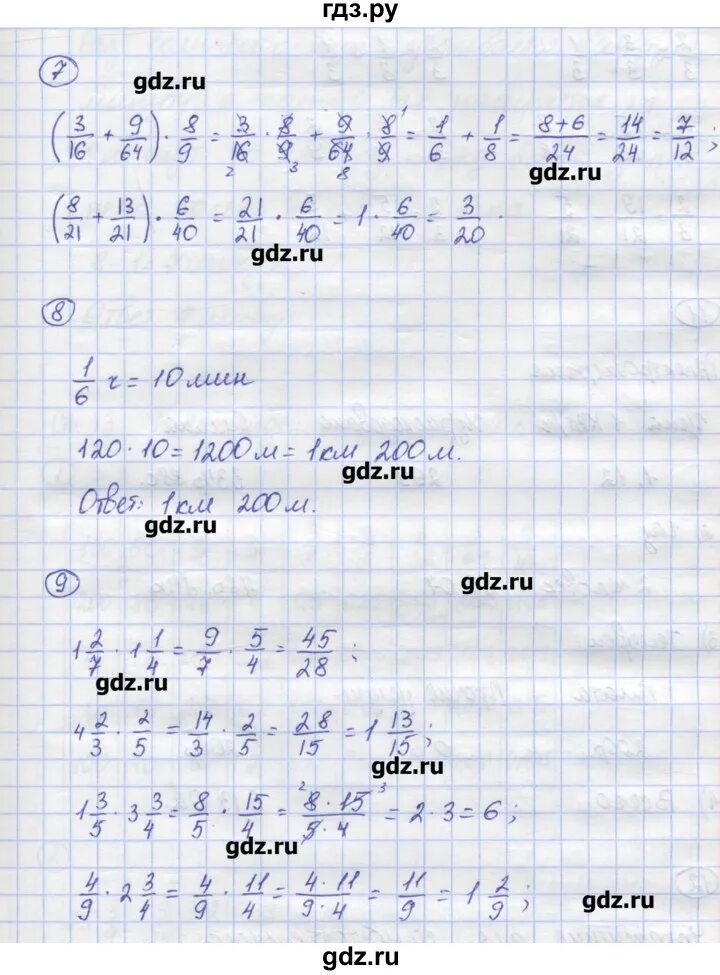 гдз.ру
7
gdz.ru
(3/16 + 9/64) · 8/9 = 3/16 · 8/9 + 9/64 · 8/9 = 1/6 + 1/8 = 8+6/24 = 14/24 = 7/12 ;
2 3 8 1
gdz.ru
(8/21 + 13/21) · 6/40 = 21/21 · 6/40 = 1 · 6/40 = 3/20 .
gdz.ru
8
1/6 ч = 10 мин
120 · 10 = 1200 м = 1 км 200 м.
gdz.ru
Ответ: 1 км 200 м.
gdz.ru
9
gdz.ru
1 2/7 · 1 1/4 = 9/7 · 5/4 = 45/28 ;
gdz.ru
4 2/3 · 2/5 = 14/3 · 2/5 = 28/15 = 1 13/15 ;
gdz.ru
1 3/5 · 3 3/4 = 8/5 · 15/4 = 2 8 · 15 3/5 · 4 = 2 · 3 = 6 ;
gdz.ru
4/9 · 2 3/4 = 4/9 · 11/4 = 4 · 11/9 · 4 = 11/9 = 1 2/9 ;
gdz.ru
gdz.ru